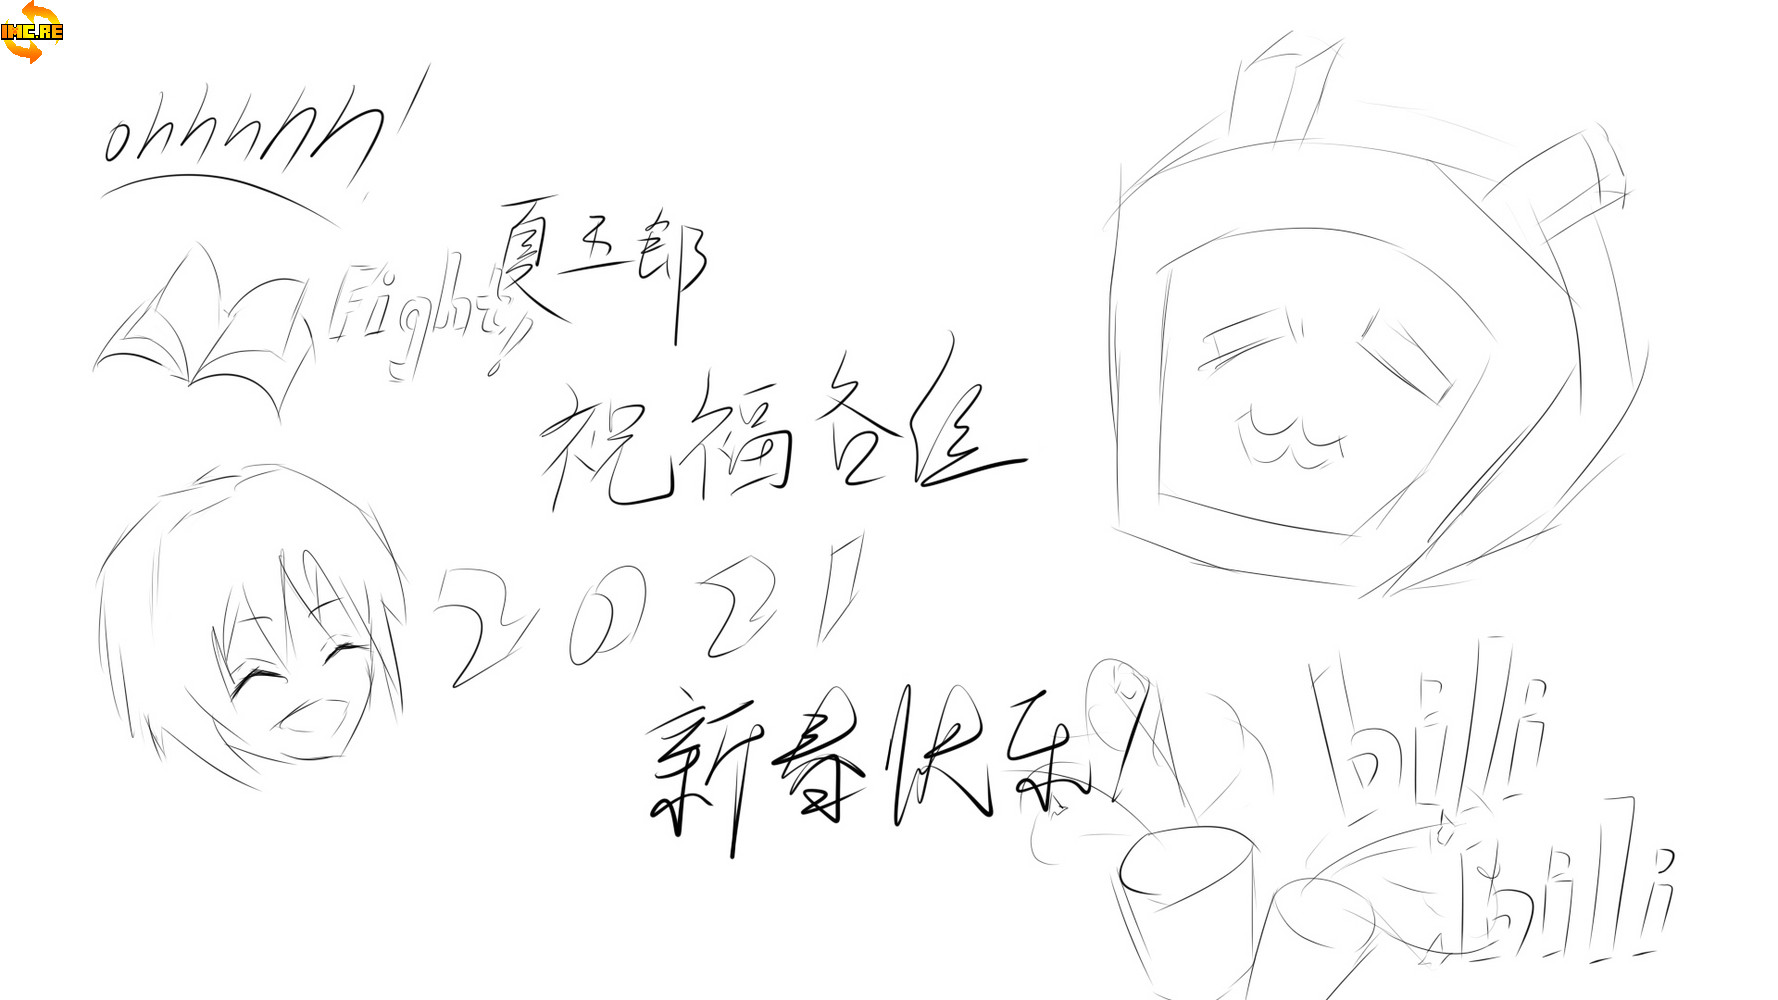 IMC.RE
ohhhhh!
Fight!
夏五郎
祝福各位
2021
新春快乐!
bili
bili